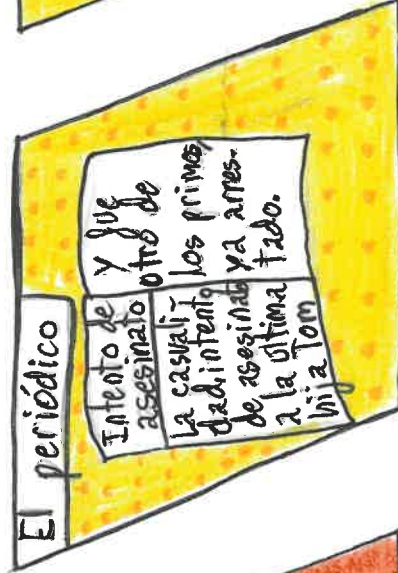 El periódico
Intento de
asesinato
La casuali-
dad, intento
de asesinato
a la última
hija Tom
y fue
otro de
los primos,
ya arres-
tado.